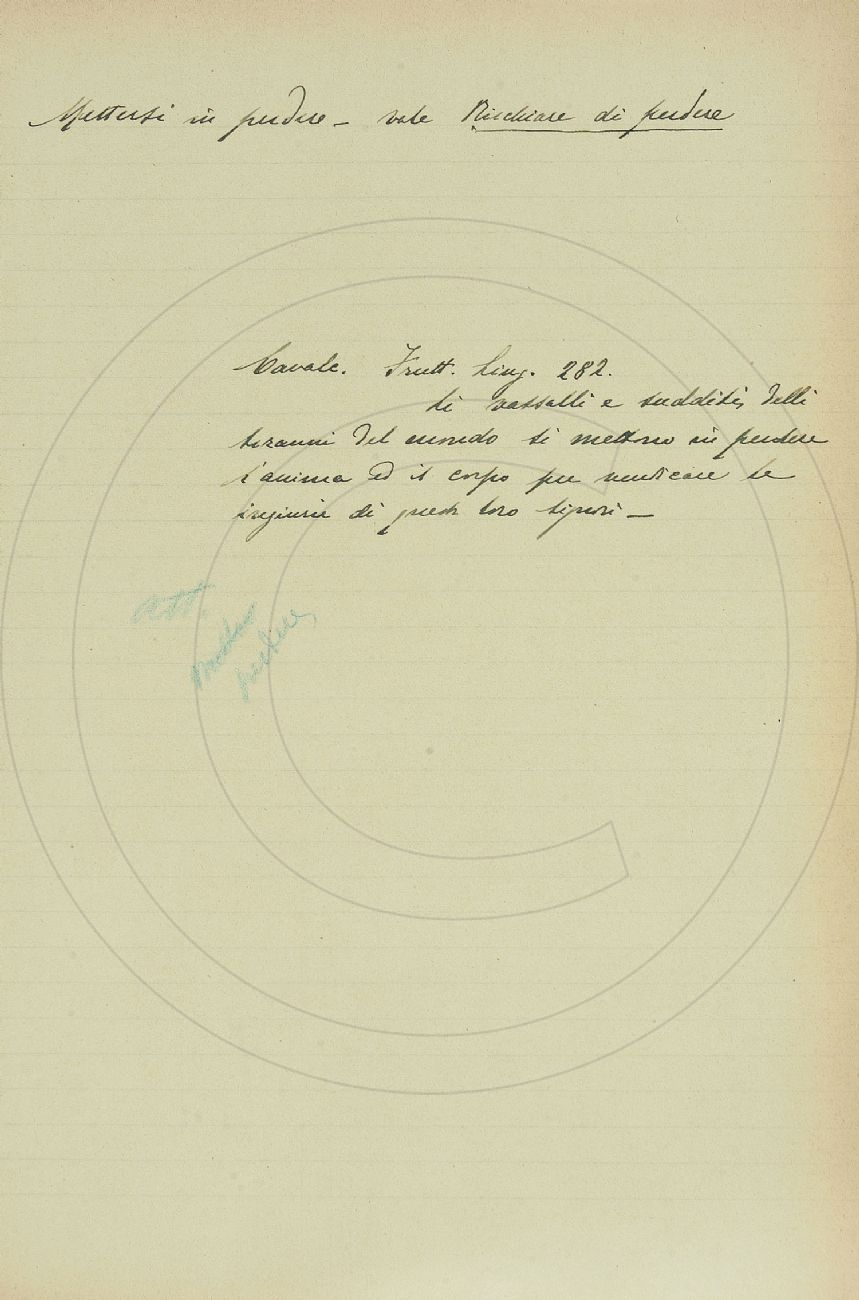 Mettersi in perdere - vale Rischiare di perdere
Cavalc. Frutt. Ling. 282.
Li vassalli e sudditi, delli
tiranni del mondo si mettono in perdere
l'anima ed il corpo per vendicare le
ingiurie di questi loro signori -
Att.
perdere